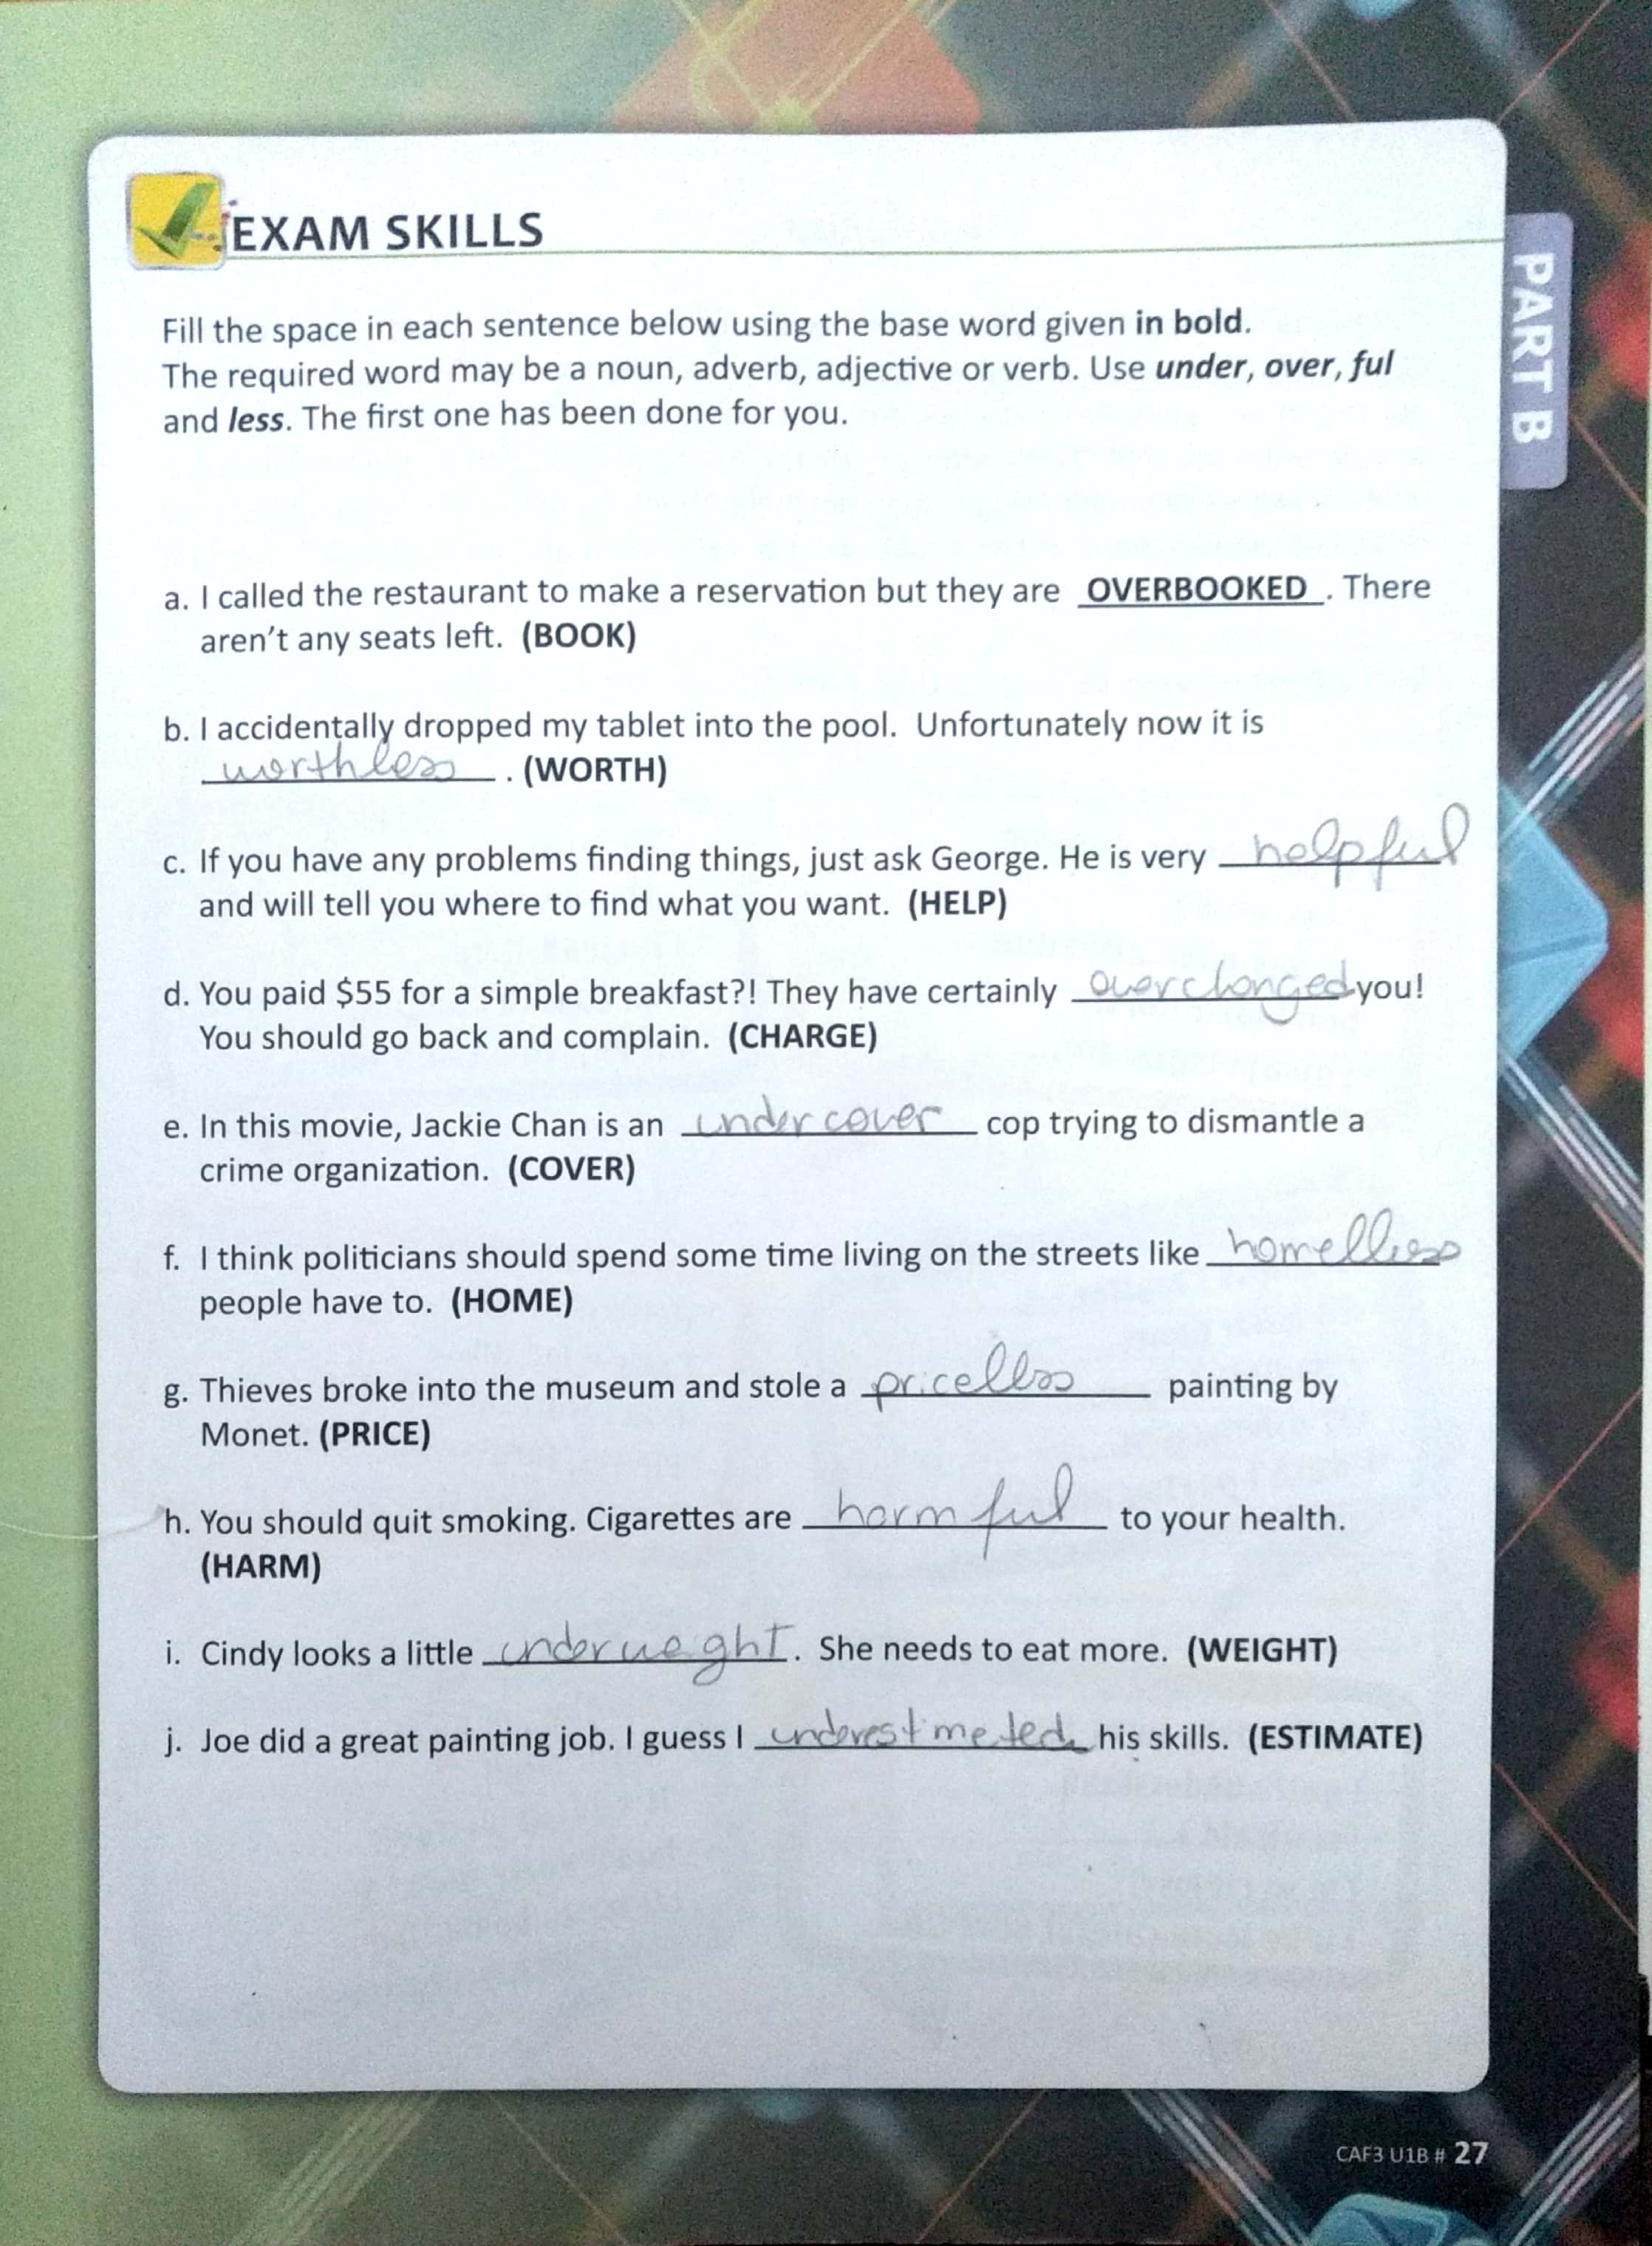 EXAM SKILLS
PART B
Fill the space in each sentence below using the base word given in bold.
The required word may be a noun, adverb, adjective or verb. Use under, over, ful
and less. The first one has been done for you.
a. I called the restaurant to make a reservation but they are OVERBOOKED. There
aren't any seats left. (BOOK)
b. I accidentally dropped my tablet into the pool. Unfortunately now it is
worthless. (WORTH)
c. If you have any problems finding things, just ask George. He is very helpful
and will tell you where to find what you want. (HELP)
d. You paid $55 for a simple breakfast?! They have certainly overchanged you!
You should go back and complain. (CHARGE)
e. In this movie, Jackie Chan is an undercover cop trying to dismantle a
crime organization. (COVER)
f. I think politicians should spend some time living on the streets like homelless
people have to. (HOME)
g. Thieves broke into the museum and stole a pricelless painting by
Monet. (PRICE)
h. You should quit smoking. Cigarettes are harmful to your health.
(HARM)
i. Cindy looks a little underweght. She needs to eat more. (WEIGHT)
j. Joe did a great painting job. I guess I underestimeted his skills. (ESTIMATE)
CAF3 U1B # 27